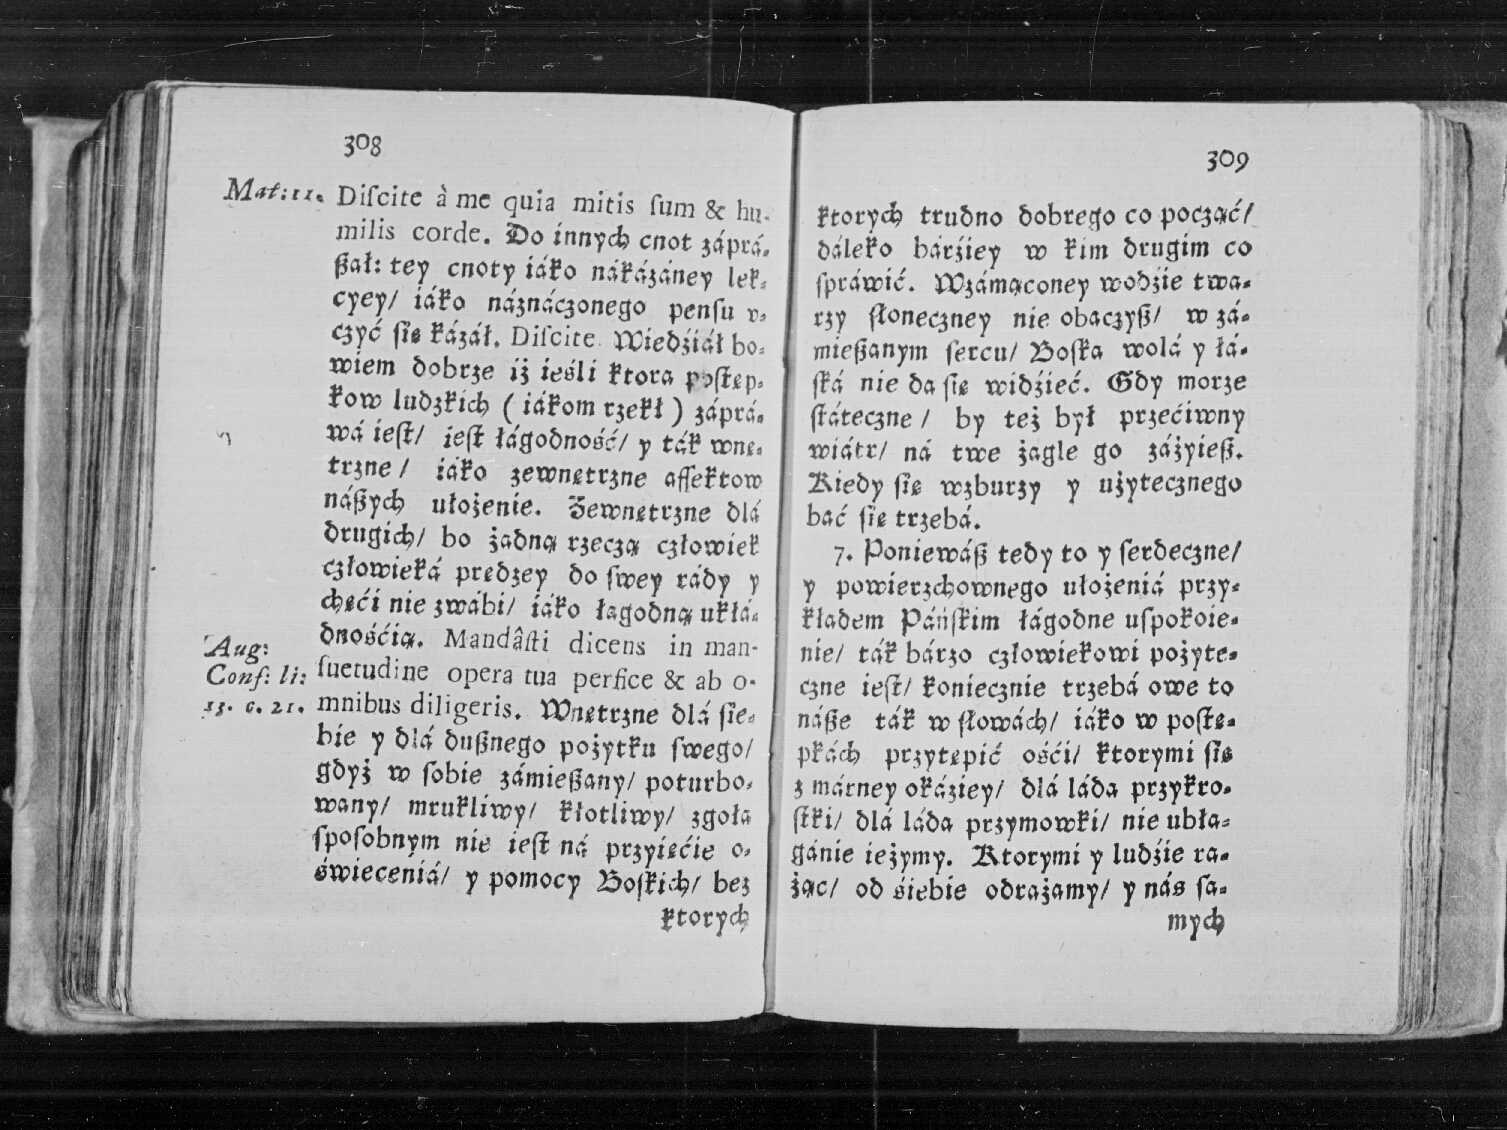 308
Mat: 11.
Diſcite à me quia mitis ſum & hu-
milis corde. Do innych cnot záprá-
ßał: tey cnoty iáko nákázáney lek-
cyey/ iáko náznáczonego penſu v-
czyć ſię kázáł. Diſcite. Wiedźiáł bo-
wiem dobrze iż ieśli ktora poſtęp-
kow ludzkich (iákom rzekł) záprá-
wá ieſt/ ieſt łágodność/ y ták wnę-
trzne/ iáko zewnętrzne affektow
náßych ułożenie. Zewnętrzne dlá
drugich/ bo żadną rzeczą człowiek
człowieká prędzey do ſwey rády y
chęći nie zwábi/ iáko łagodną ukłá-
dnośćią. Mandâſti dicens in man-
ſuetudine opera tua perfice & ab o-
mnibus diligeris. Wnętrzne dlá ſie-
bie y dlá dußnego pożytku ſwego/
gdyż w ſobie zámießany/ poturbo-
wany/ mrukliwy/ kłotliwy/ zgoła
ſpoſobnym nie ieſt ná przyięćie o-
świeceniá/ y pomocy Boſkich/ bez
ktorych
Aug:
Conf: li:
13. c. 21.
309
ktorych trudno dobrego co począć/
dáleko bárźiey w kim drugim co
ſpráwić. Wzámąconey wodźie twa-
rzy ſłoneczney nie obaczyß/ w zá-
mießanym ſercu/ Boſka wolá y łá-
ſká nie da ſię widźieć. Gdy morze
ſtáteczne/ by też był przećiwny
wiátr/ ná twe żagle go záżyieß.
Kiedy ſię wzburzy y użytecznego
bać ſię trzebá.
7. Ponieważ tedy to y ſerdeczne/
y powierzchownego ułożeniá przy-
kładem Páńſkim łágodne uſpokoie-
nie/ ták bárzo człowiekowi pożyte-
czne ieſt/ koniecznie trzebá owe to
náße ták w ſłowách/ iáko w poſtę-
pkách przytępić ośći/ ktorymi ſię
z márney okáziey/ dlá ládá przykro-
ſtki/ dlá ládá przymowki/ nie ubła-
gánie ieżymy. Ktorymi y ludźie ra-
żąc/ od śiebie odrażamy/ y nás ſa-
mych